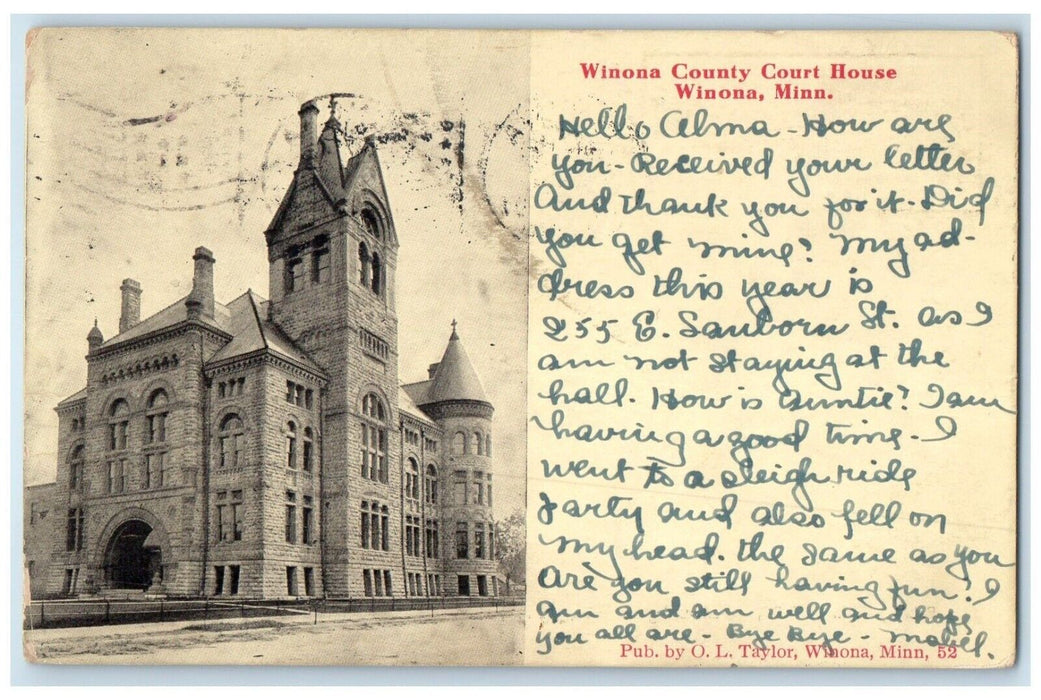 Winona County Court House
Winona, Minn.
Hello Alma - How are
you - Received your letter
And thank you for it - Did
you get mine? My ad-
dress this year is
255 E. Sanborn St. as I
am not staying at the
hall. How is Auntie? I am
having a good time - I
went to a sleigh ride
party and also fell on
my head. the same as you
Are you still having fun? I
am and am well and hope
you all are - Bye Bye - Mabel.
Pub. by O. L. Taylor, Winona, Minn, 52